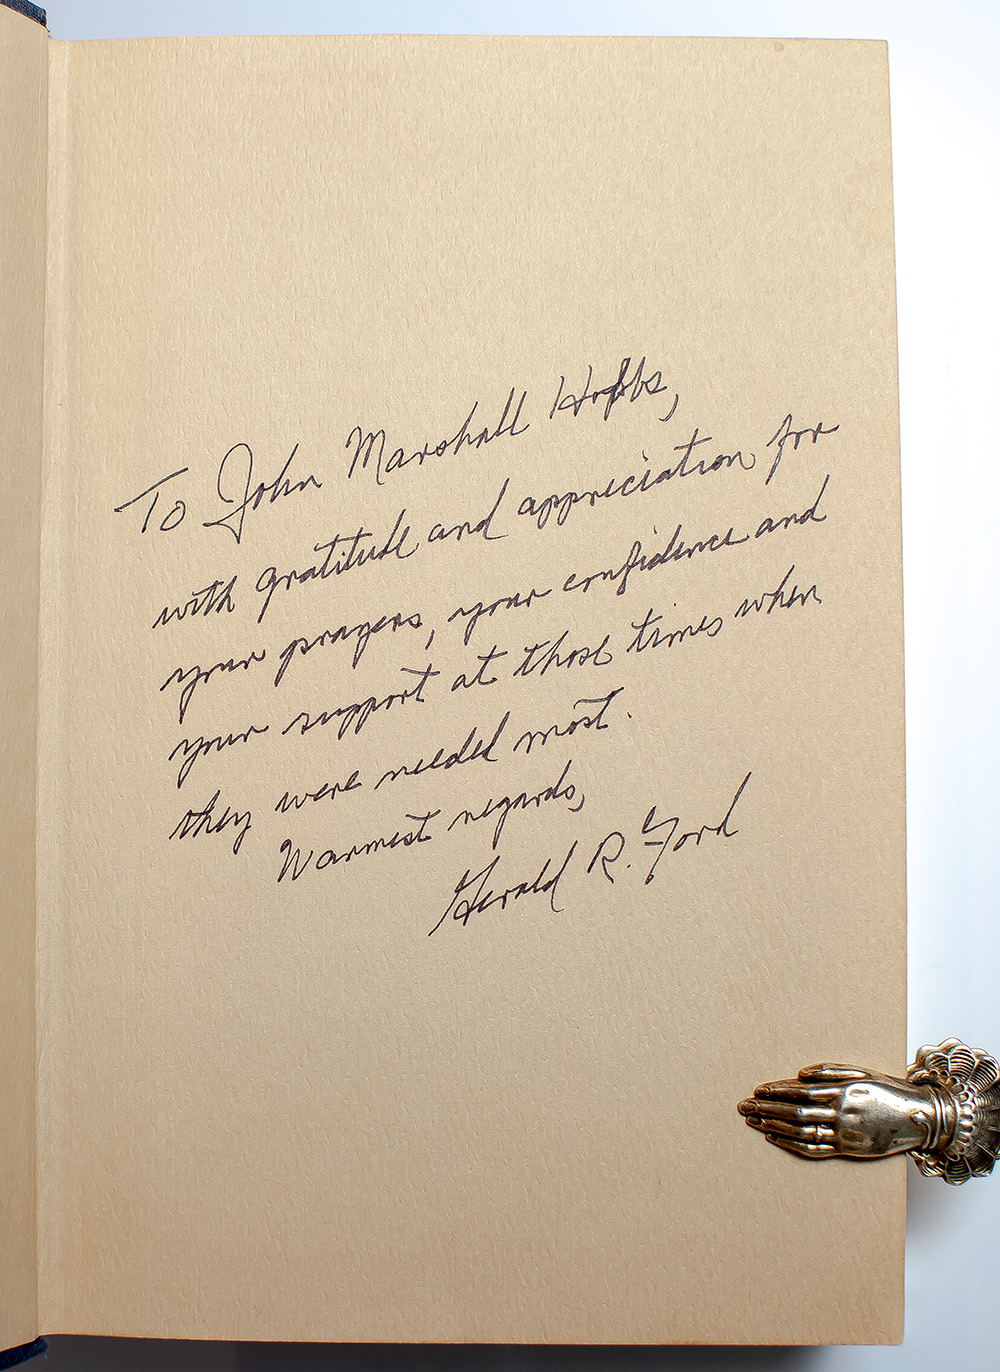 To John Marshall Hobbs,
with gratitude and appreciation for
your prayers, your confidence and
your support at those times when
they were needed most.
Warmest regards,
Gerald R. Ford